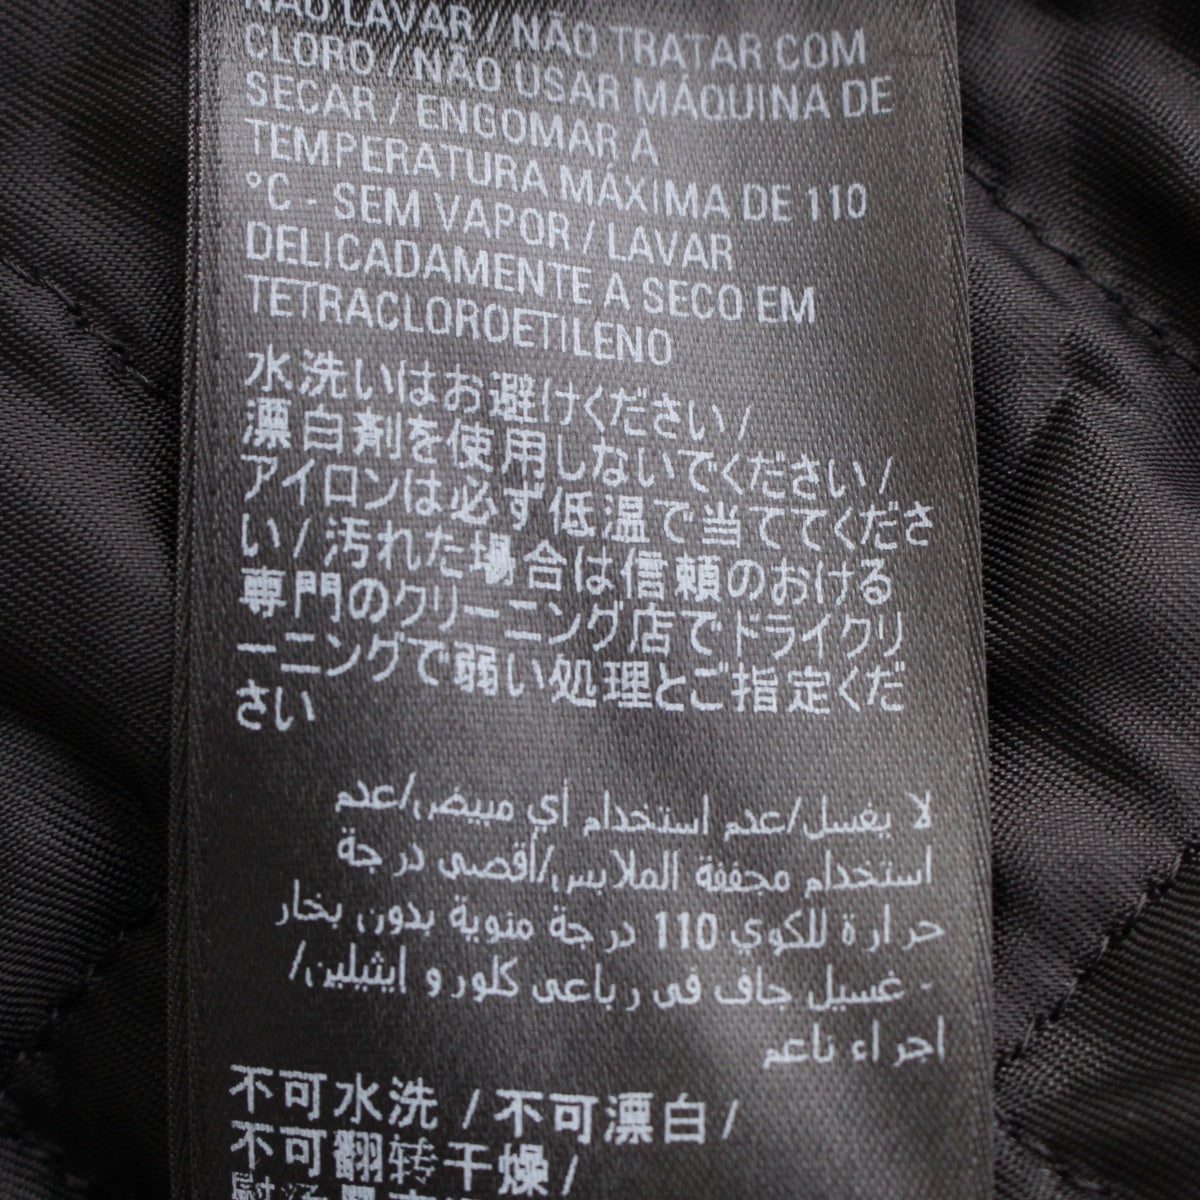 NÃO LAVAR / NÃO TRATAR COM
CLORO / NÃO USAR MÁQUINA DE
SECAR / ENGOMAR À
TEMPERATURA MÁXIMA DE 110
°C - SEM VAPOR / LAVAR
DELICADAMENTE A SECO EM
TETRACLOROETILENO
水洗いはお避けください/
漂白剤を使用しないでください/
アイロンは必ず低温で当ててくださ
い/汚れた場合は信頼のおける
専門のクリーニング店でドライクリ
ーニングで弱い処理とご指定くだ
さい
لا يغسل/عدم استخدام أي مبيض/عدم
استخدام مجففة الملابس/أقصى درجة
حرارة للكوي 110 درجة منوية بدون بخار
- غسيل جاف فى رباعى كلورو ايثيلين/
اجراء ناعم
不可水洗 / 不可漂白 /
不可翻转干燥 /